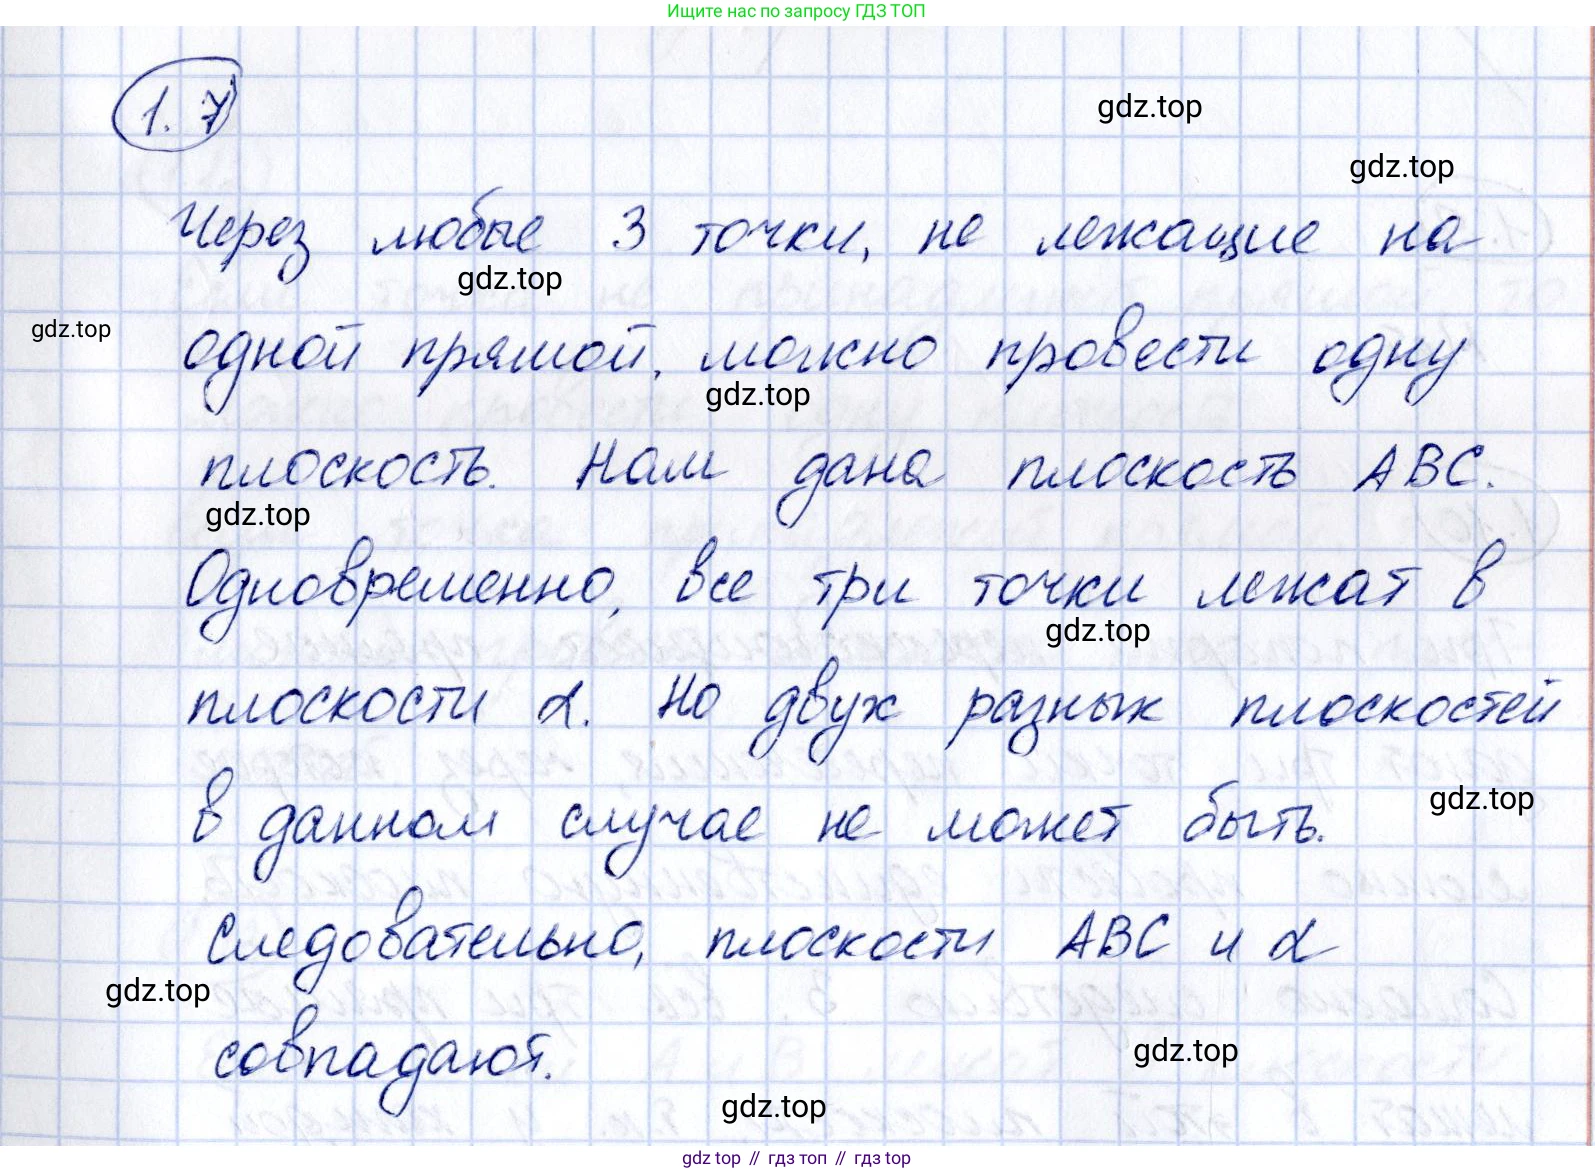 Ищите нас по запросу ГДЗ ТОП
1.7
gdz.top
gdz.top
Через любые 3 точки, не лежащие на
gdz.top
gdz.top
одной прямой, можно провести одну
gdz.top
плоскость. Нам дана плоскость ABC.
gdz.top
Одновременно, все три точки лежат в
gdz.top
плоскости α. Но двух разных плоскостей
gdz.top
в данном случае не может быть.
Следовательно, плоскости ABC и α
gdz.top
совпадают.
gdz.top
gdz.top
gdz top // гдз топ // gdz top